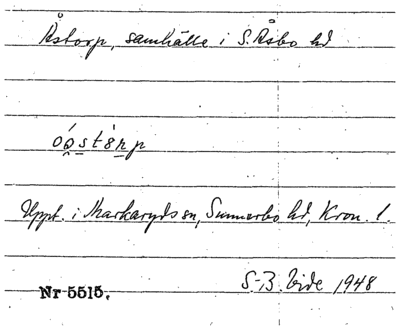 Åstorp, samhälle i S. Åsbo hd
óo̯stårp
Uppt. i Markaryds sn, Sunnerbo hd, Kron. l.
S.-B. Vide 1948
Nr 5515.